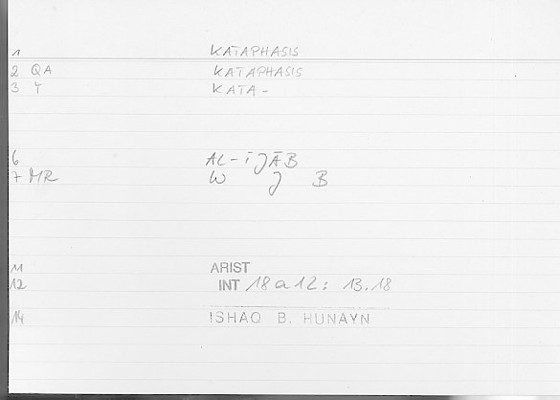 1 KATAPHASIS
2 QA KATAPHASIS
3 T KATA-
6 AL-ĪJĀB
7 MR W J B
11 ARIST
12 INT 18a12: 13.18
14 ISHAQ B. HUNAYN